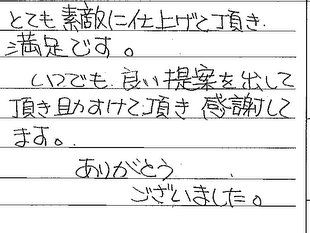 とても素敵に仕上げて頂き
満足です。
いつでも良い提案を出して
頂き助すけて頂き感謝して
ます。
ありがとう
ございました。